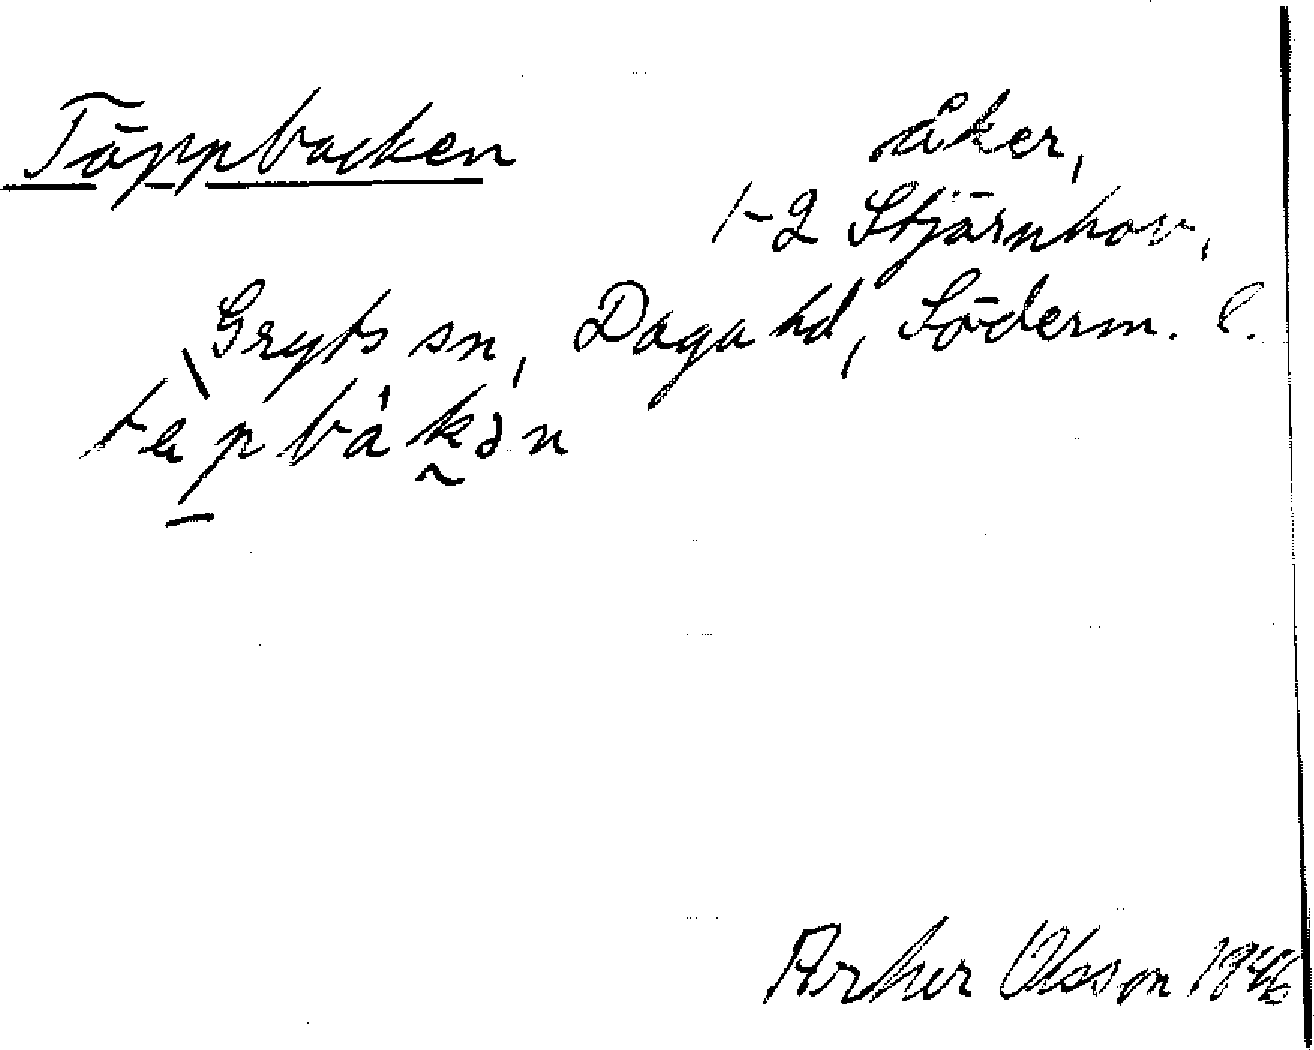 Täppbacken åker,
1-2 Stjärnhov,
Gryts sn, Daga hd, Söderm. l.
tèpbákən
Olsson 1946